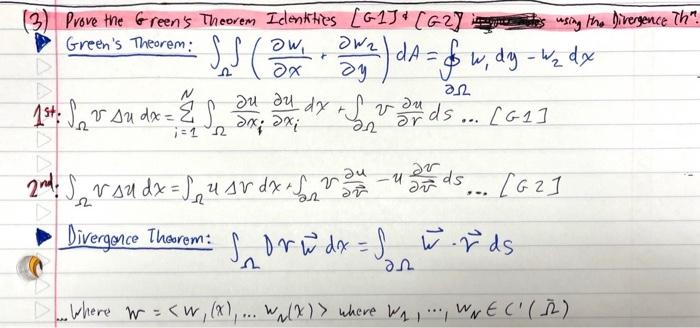 (3) Prove the Green's Theorem Identities [G1] & [G2] using the Divergence Thm.
Green's Theorem: ∫∫_Ω (∂w₁/∂x + ∂w₂/∂y) dA = ∮_∂Ω w₁ dy - w₂ dx
1st: ∫_Ω v Δu dx = Σ_{i=1}^N ∫_Ω ∂u/∂xᵢ ∂u/∂xᵢ dx + ∫_∂Ω v ∂u/∂r ds ... [G1]
2nd: ∫_Ω v Δu dx = ∫_Ω u Δv dx + ∫_∂Ω v ∂u/∂v⃗ - u ∂v/∂v⃗ ds ... [G2]
Divergence Theorem: ∫_Ω Dv w⃗ dx = ∫_∂Ω w⃗ · v⃗ ds
...Where w = <w₁(x), ... w_N(x)> where w₁, ..., w_N ∈ C'(Ω̄)